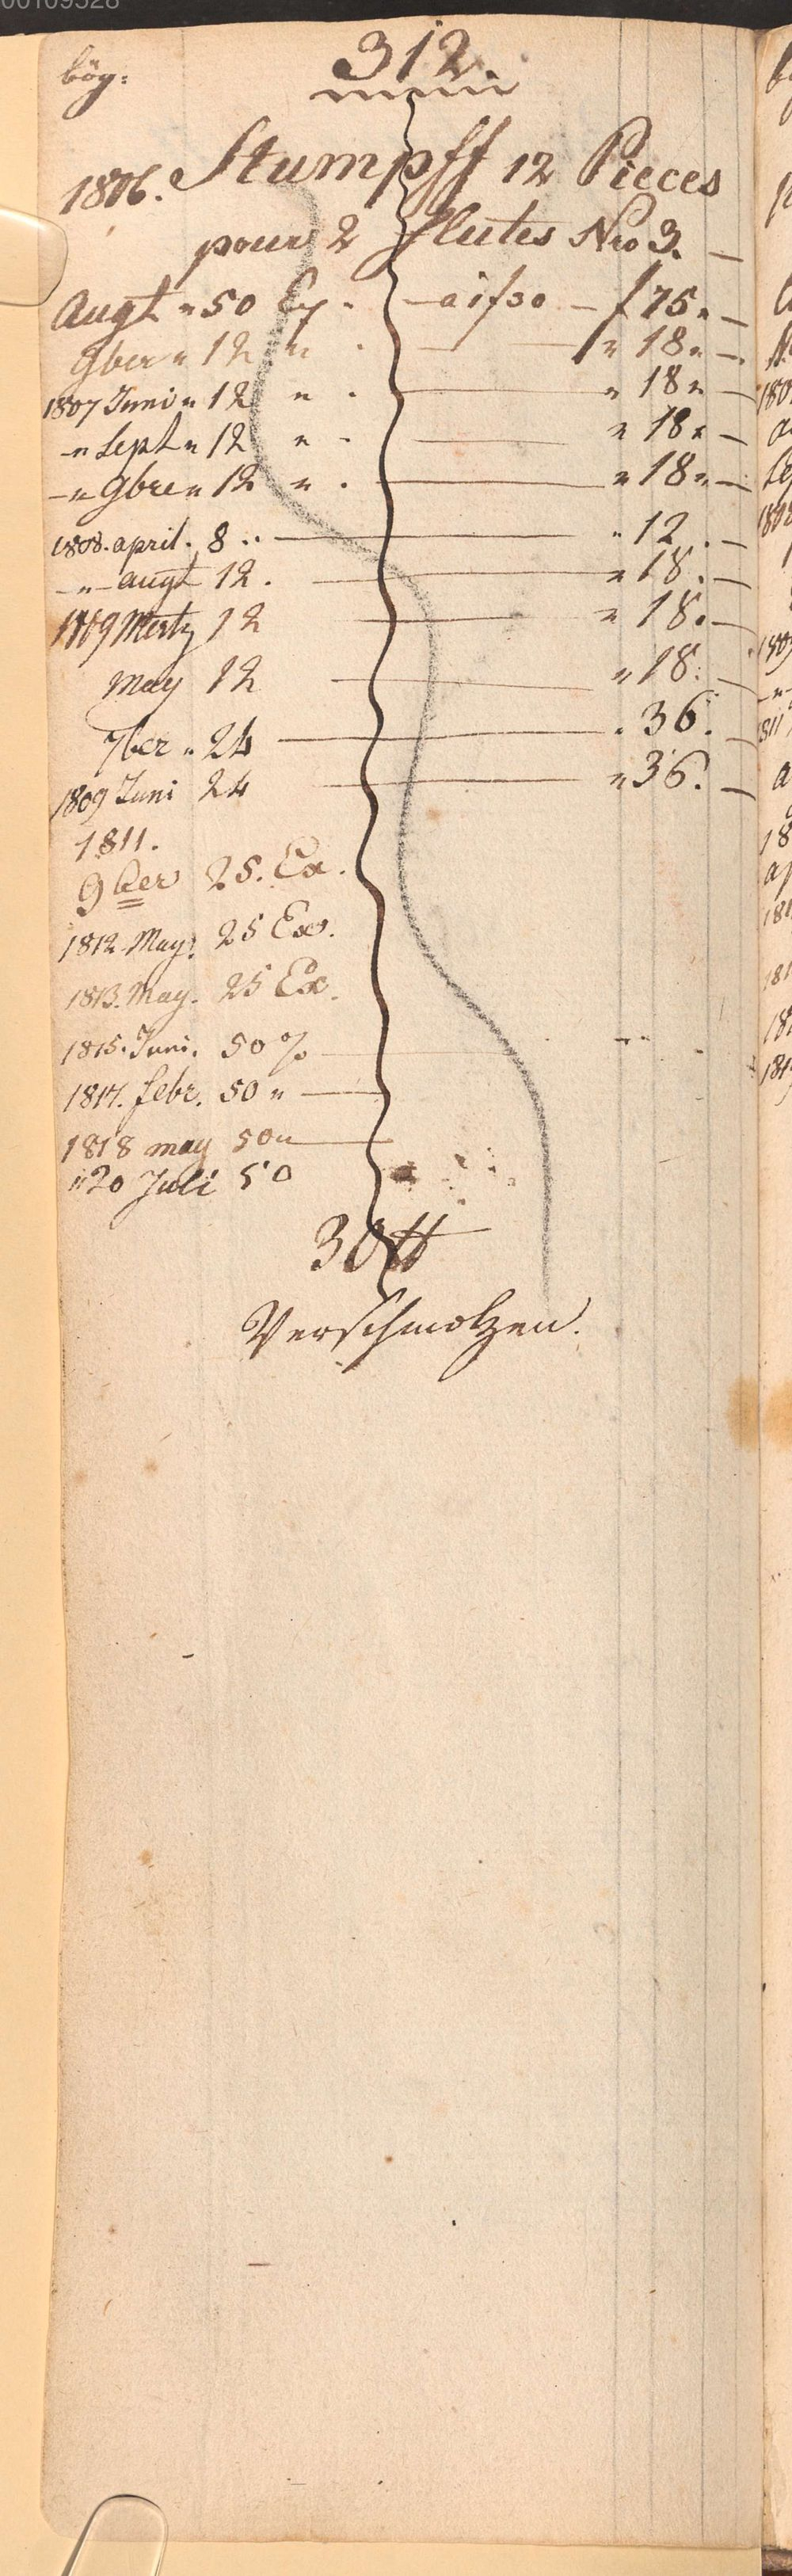 00109528
bög:
312.
1806. Stumpff 12 Pieces
pour 2 flutes Nro 3. —
Augt " 50 Ex. — a 1f30 — f 75 " —
9ber " 12 " . — " 18 " —
1807 Juni " 12 " . — " 18 " —
— " Sept " 12 " . — " 18 " —
— " 9bre " 12 " . — " 18 " —
1808. april. 8 .. — " 12 . —
— " — augt 12 . — " 18 . —
1809 Mertz 12 — " 18. —
May 12 — " 18. —
7ber " 24 — " 36. —
1809 Juni 24 — " 36. —
1811.
9ber 25. Ex.
1812. May. 25 Ex.
1813. May. 25 Ex.
1815. Juni. 50 % —
1817. febr. 50 " —
1818 may 50 " —
" 20 Juli 50
30 ℔
Verschmolzen.